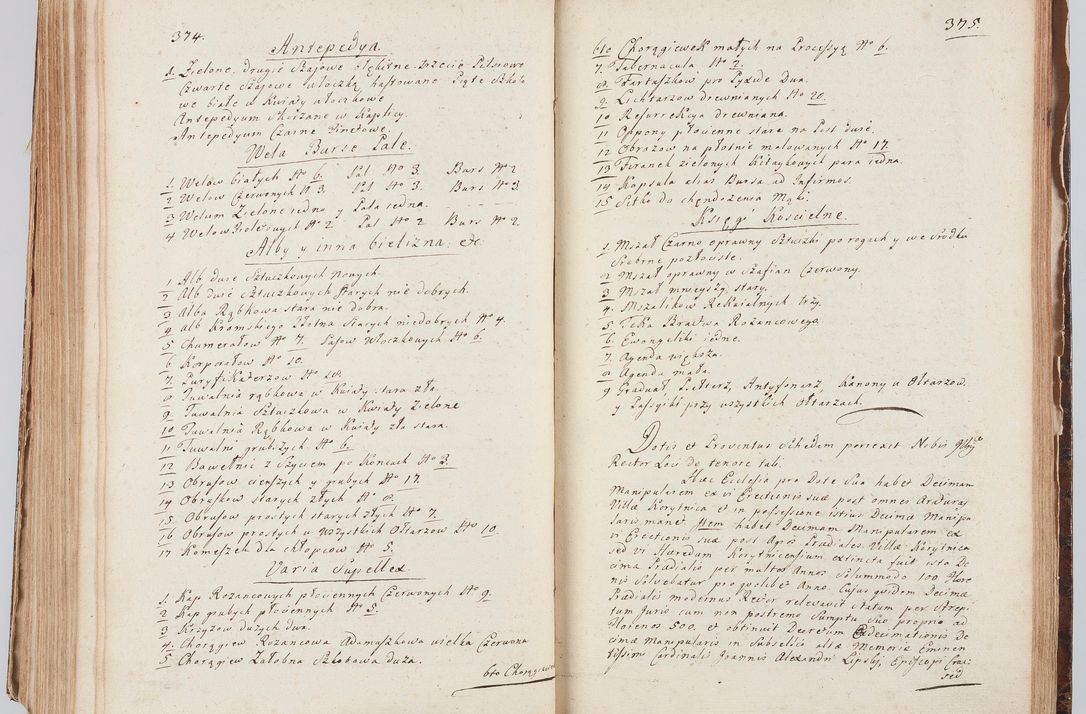 374.
Antepedya.
1. Zielone, drugie Szajowe błękitne trzecie Pilsiowe
Czwarte Szajowe włóczką haftowane Piąte Szkoła
we białe w Kwiaty włoczkowe
Antepedyum Skożane w Kaplicy.
Antepedyum Czarne Kinetowe.
Wela Burse Pale.
1. Welow białych No 6. Pal No 3. Burs No 2
2 Welow Czerwonych No 3. Pal No 3. Burs No 3
3 Welum Zielone jedno y Pala jedna.
4. Welow Fioletowych No 2 Pal No 2 Burs No 2.
Alby y inna bielizna; &c:
1 Alb dwie Sztuczkowych nowych.
2 Alb dwie Sztuczkowych starych nie dobrych.
3 Alba Rąbkowa stara nie dobra.
4 Alb Kromskiego Płotna starych niedobrych No 4.
5 Humerałow No 7. Pasow Włoczkowych No 6.
6 Korporałow No 10.
7 Puryfikaterzow No 18.
8 Tuwalnia rąbkowa w Kwiaty stara zła.
9. Tuwalnia Sztuczkowa w Kwiaty Zielone
10 Tuwalnia Rąbkowa w Kwiaty zła stara.
11 Tuwalni grubszych No 6.
12 Bawełnic z Szyciem po Koncach No 2.
13 Obrusow cienszych y grubych No 17.
14 Obruskow starych złych No 8.
15. Obrusow prostych starych złych No 7
16 Obrusow prostych u wszystkich Ołtarzow No 10.
17 Komeszek dla chłopcow No 5.
Varia Supellex.
1. Kap Rozancowych płociennych Czerwonych No 9.
2 Kap grubych płociennych No 5.
3 Krzyzow duzych dwa.
4. Chorągiew Rozancowa Adamaszkowa wielka Czerwona
5 Chorągiew Załobna Szkotowa duza.
6to Chorągiewek
375.
6to Chorągiewek małych na Processyą No 6.
7. Tabernacula No 2.
8. Fartuszkow pro Pyxide Dwa.
9. Lichtarzow drewnianych No 20.
10 Resurrekcya drewniana.
11 Oppony płocienne stara na Post dwie.
12 Obrazow na płotnie malowanych No 17.
13 Firanek zielonych Kitaykowych para jedna.
14 Kapsula alias Bursa ad Infirmos.
15 Sitko do chędożenia Mąki.
Księgi Koscielne.
1. Mszał Czarno oprawny Sztuczki po rogach y we srodku
Srebrne pozłociste.
2 Mszał oprawny w Szafian Czerwony.
3 Mszał mnieyszy stary.
4. Mszalikow Rekwialnych trzy.
5 Teka Bractwa Rozancowego.
6. Ewangeliki jedne.
7. Agenda większa.
8 Agenda mała.
9 Graduał Psałterz, Antyfonarz, Kanony u Ołtarzow,
y Passyiki przy wszystkich Ołtarzach.
Dotis et Proventus Schedam porrexit Nobis
Rector Loci de tenore tali.
Hac Ecclesia pro Dote Sua habet Decimam
Manipularem ex vi Erectionis suæ post omnes Araturas
Villæ Korytnica et in possessione istius Decimæ Manipu
laris manet. Item habet Decimam Manipularem ex
vi Erectionis suæ post Agros Prædiales Villæ Korytnica
sed vi Hæredum Korytnicensium extincta fuit ista De
cima Prædialis per multos Annos Solummodo 100 Flore
nis Solvebatur pro quolibet Anno. Cujus quidem Decimæ
Prædialis modernus Rector relevavit statum per Strepi
tum Juris cum non postremo Sumptu Suo proprio ad
Florenos 500. et obtinuit Decretum Edecimationis De
cimæ Manipularis in Subsellio altæ Memoriæ Eminen
tissimi Cardinalis Joannis Alexandri Lipsky, Episcopi Crac:
sed